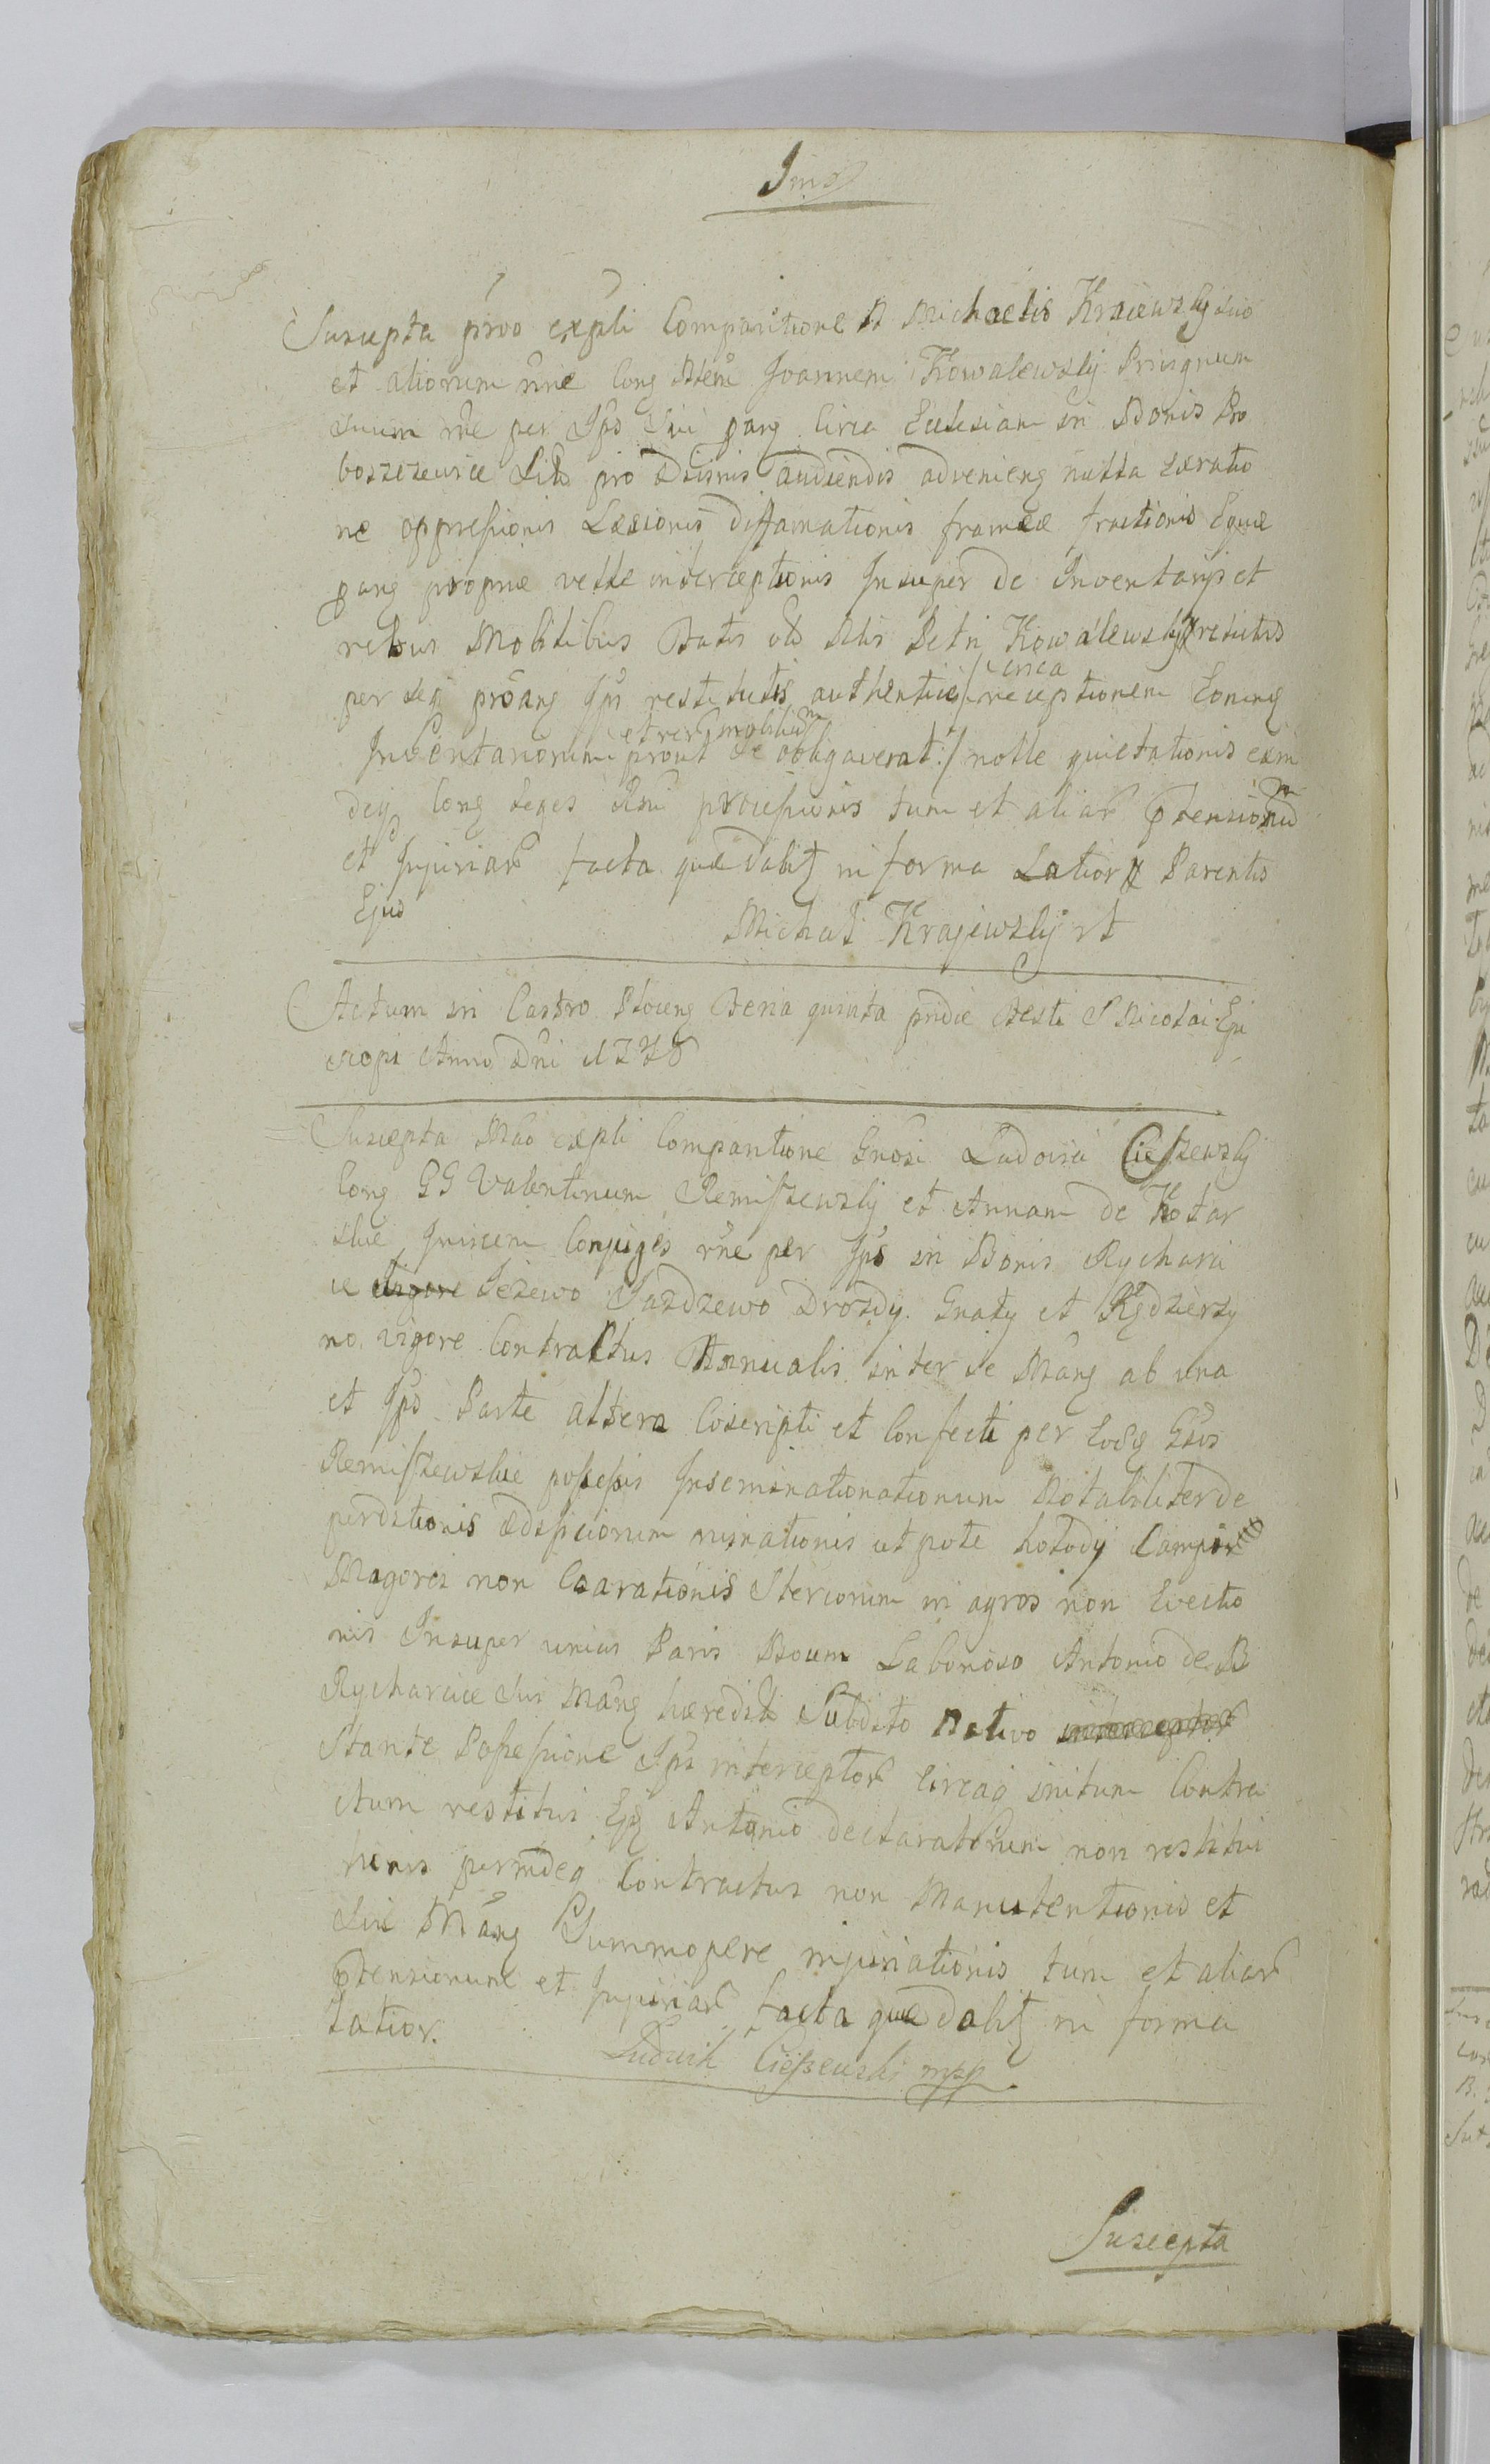 Suscepta proo expli Comparitione N Michaelis Kraiewskij suo
et aliorum nne cong Nem Joannem Kowalewskij Privignum
suum rne per Ips sui pang circa Ecclesiam in Bonis Bro
boszczewice Sitis pro Divinis audiendis advenieng nulla das ratio
ne oppressionis Læsionis diffamationis frameæ fractionis Equæ
pang propriæ velle interceptionis Insuper de Inventarijs et
rebus Mobilibus Fatis olim Petri Kowalewskij relictis
per se proang Ips restitutis authentice / circa receptionem Eoneng
Inventariorum et rer mobiliu prout se obligaverat :/ nolle quietationis eam
deq cong leges processionis tum et aliar ptensionu
et Injuriar facta quæ dabit in forma Latiori Parentis
Ejus
Michał Krajewskij
Actum in Castro Ploceng Feria quinta pridie Festi S Nicolai Epi
scopi Anno Dni 1778
Suscepta Mao expli Comparitione Gnosi Ludovici Cieszewskij
cong GG Valentinum Remiszewskij et Annam de Kotar
skie Invicem Conjuges rne per Ips in Bonis Rycharci
ce vigore Jeżewo Jazdzewo Drozdy Gnaty et Kędzierzy
no vigore Contractus Annualis inter se Mang ab una
et Ips Parte altera Coscripti et Confecti per Eosq Gsos
Remiszewskie possessis Inseminationationum Notabiliter de
perditionis ædificiorum ruinationis ut pote hołody Campor
Magores non Coarationis Stercorum in agros non Evectio
nis Insuper unius Paris Boum Laborioso Antonio de B
Rycharcice sui Mang hæredis Subdito Nativo
Stante Possessione Ips interceptor circaq initum Contra
ctum restitui Ejq Antonio declaratorum non restitui
tionis perindeq Contractus non Manutentionis et
sui Mang Summopere injuriationis tum et aliar
ptensionum et Injuriar facta quæ dabit in forma
latior.
Ludwik Cieszewski mpp
Suscepta